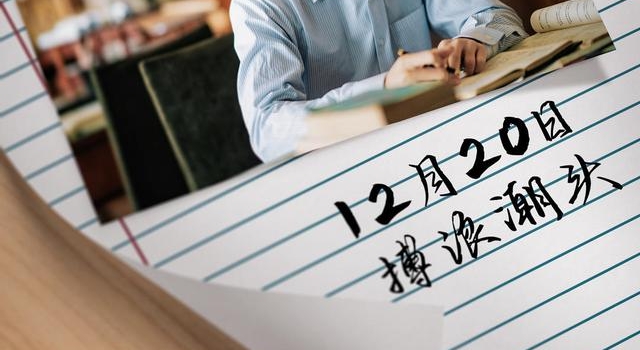 12月20日
搏浪潮头